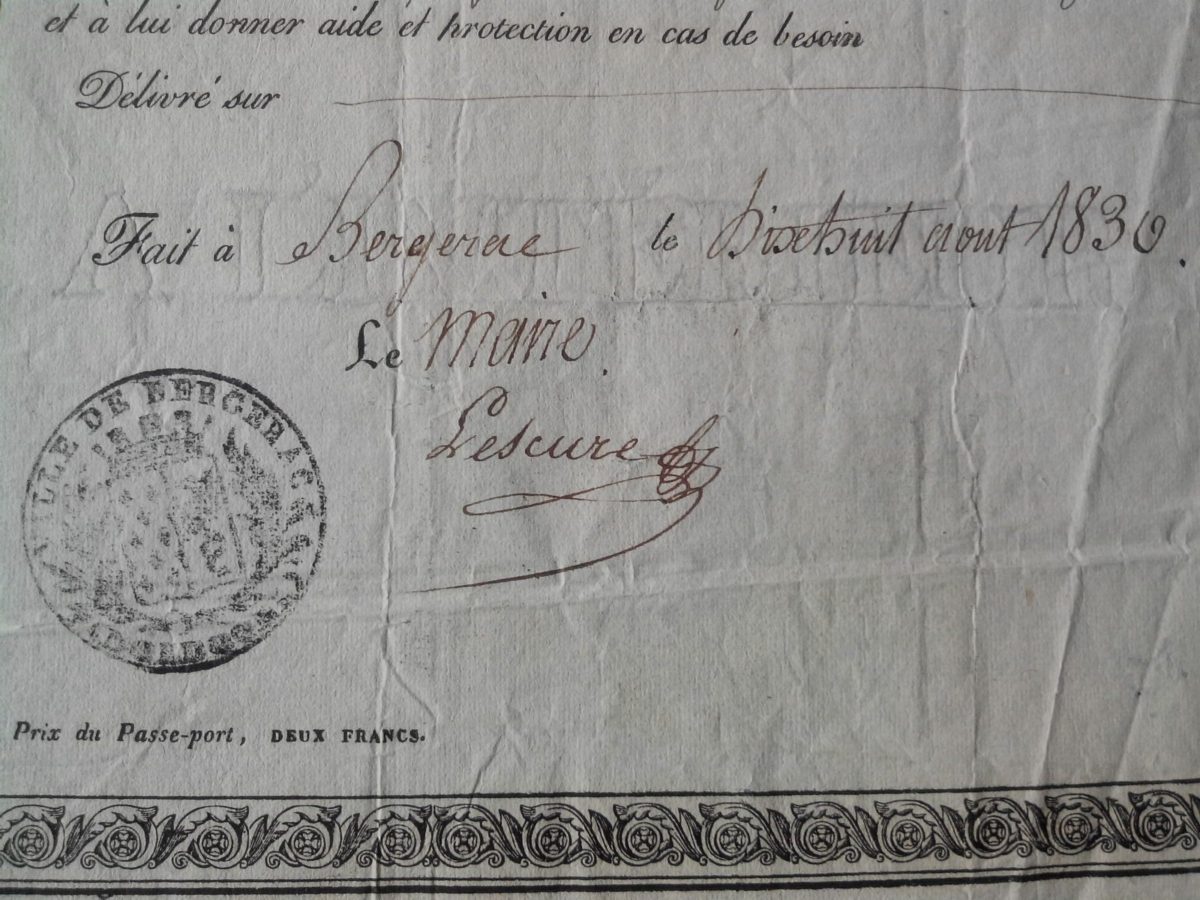 et à lui donner aide et protection en cas de besoin
Délivré sur
Fait à Bergerac le Dixhuit aout 1830.
Le Maire.
Lescure
VILLE DE BERGERAC
Prix du Passe-port, DEUX FRANCS.